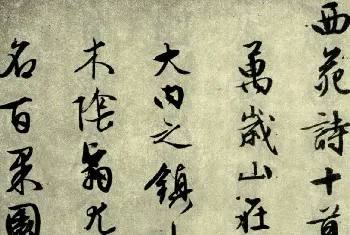 西苑詩十首
萬歲山在
大内之鎮
木陰翁尤
名百果園